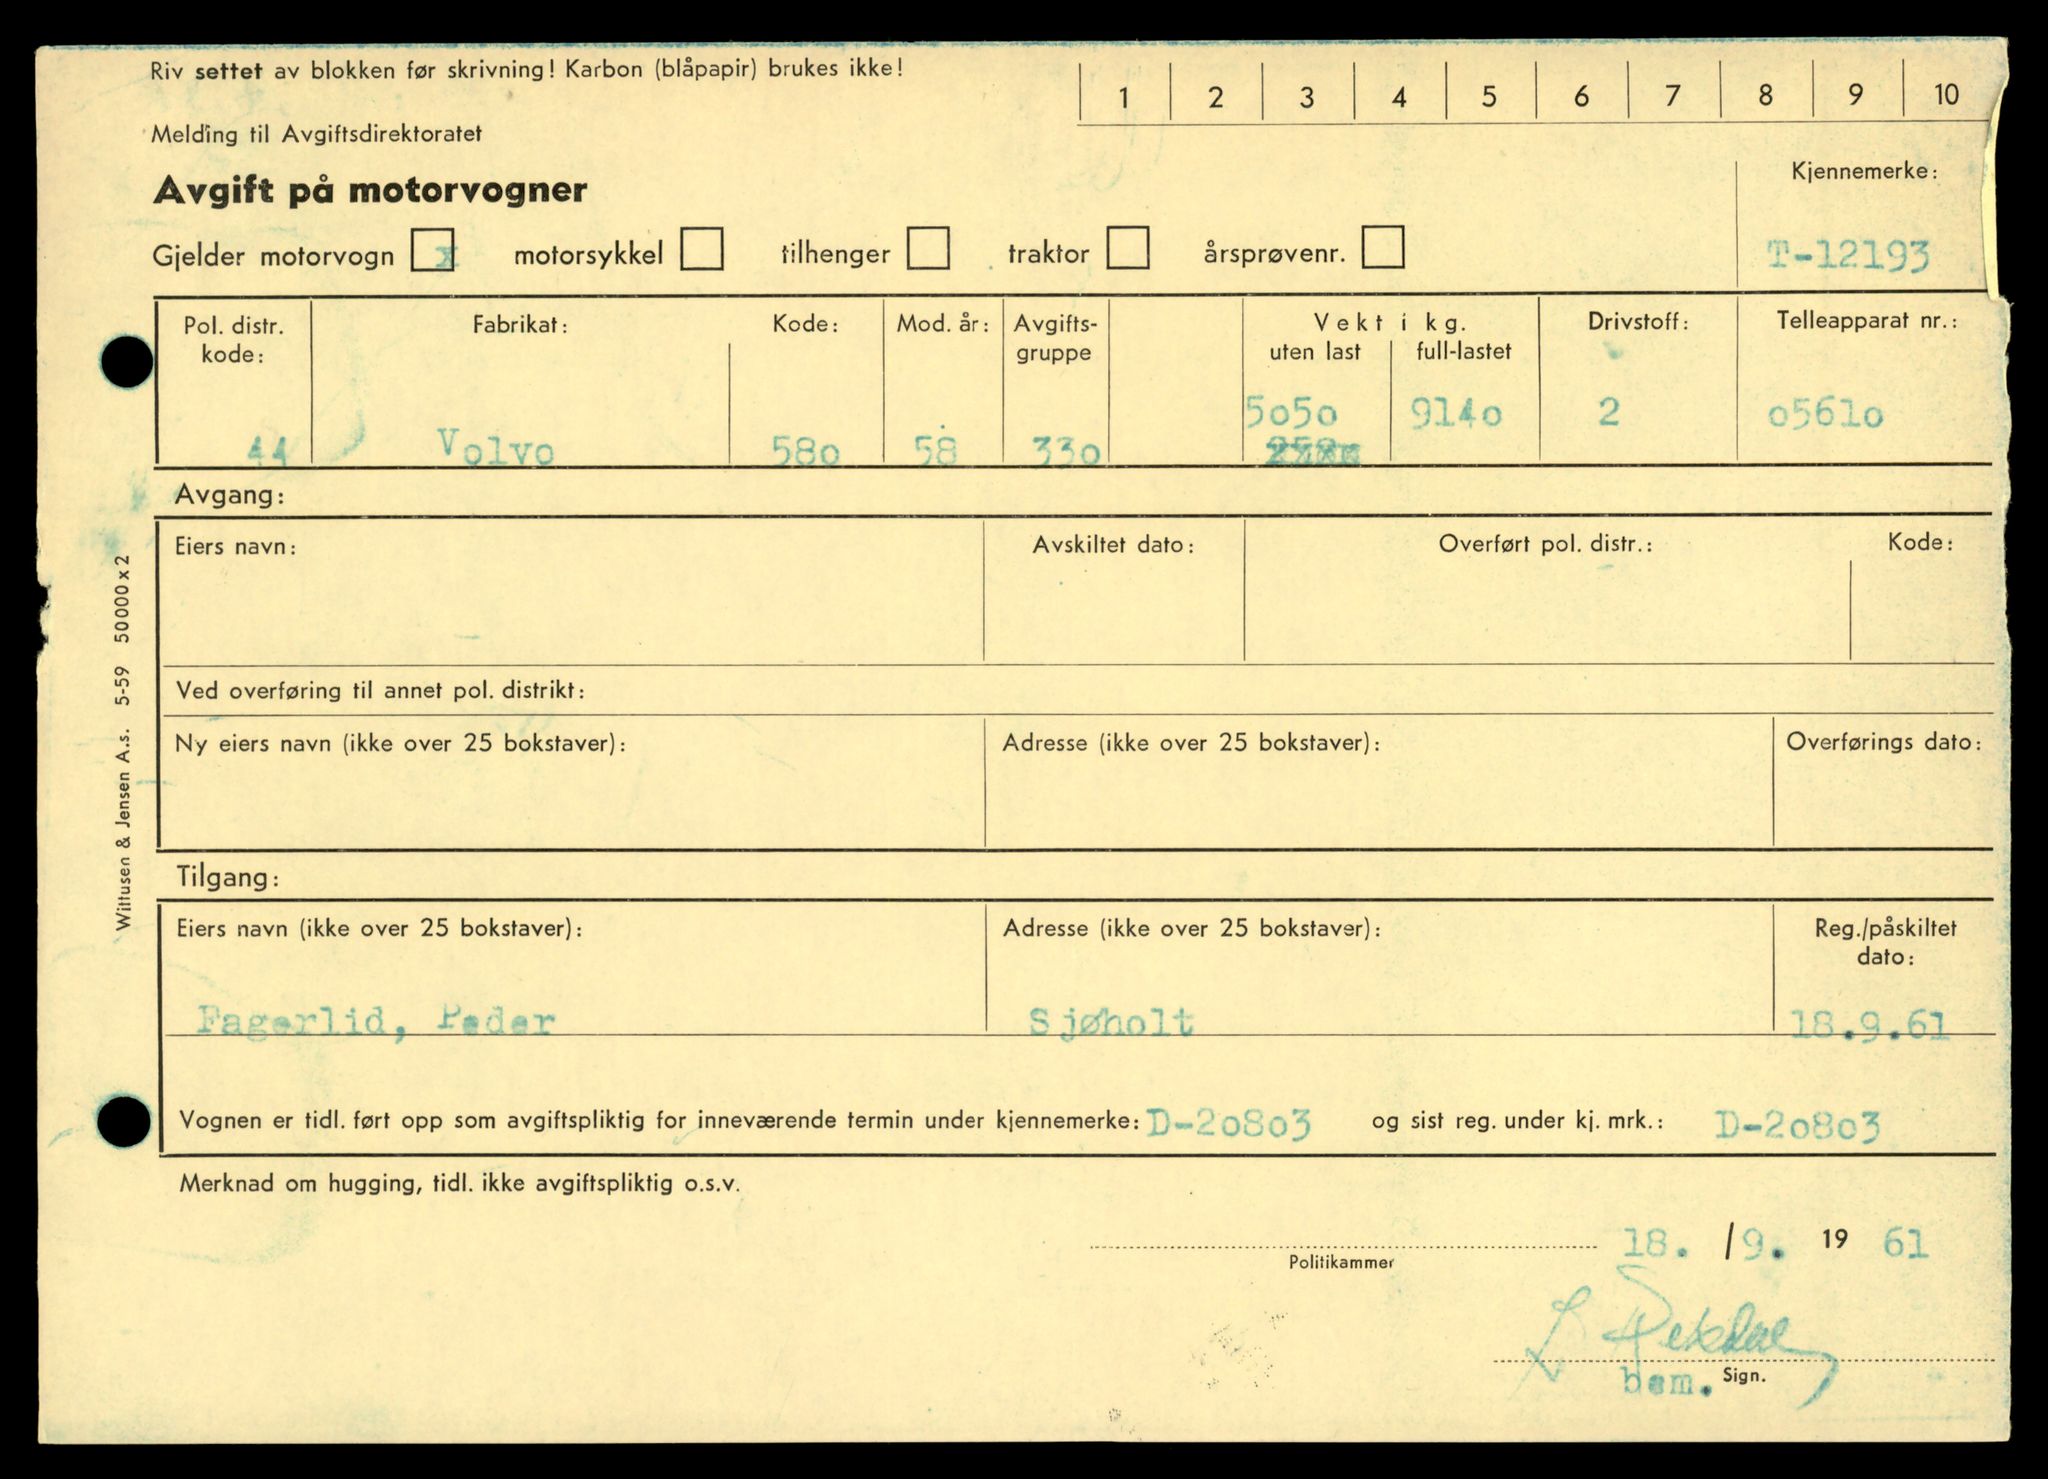 Riv settet av blokken før skrivning! Karbon (blåpapir) brukes ikke!
1 2 3 4 5 6 7 8 9 10
Melding til Avgiftsdirektoratet
Avgift på motorvogner
Kjennemerke:
Gjelder motorvogn x motorsykkel tilhenger traktor årsprøvenr.
T-12193
Pol. distr. kode: Fabrikat: Kode: Mod. år: Avgifts-gruppe Vekt i kg. uten last full-lastet Drivstoff: Telleapparat nr.:
5050 9140 2 05610
44 Volvo 580 58 330
Avgang:
Eiers navn: Avskiltet dato: Overført pol. distr.: Kode:
Ved overføring til annet pol. distrikt:
Ny eiers navn (ikke over 25 bokstaver): Adresse (ikke over 25 bokstaver): Overførings dato:
Tilgang:
Eiers navn (ikke over 25 bokstaver): Adresse (ikke over 25 bokstaver): Reg./påskiltet dato:
Fagerlid, Peder Sjøholt 18.9.61
Vognen er tidl. ført opp som avgiftspliktig for inneværende termin under kjennemerke: D-20803 og sist reg. under kj. mrk.: D-20803
Merknad om hugging, tidl. ikke avgiftspliktig o.s.v.
18. /9. 19 61
Politikammer
bem. Sign.
Wittusen & Jensen A.s. 5-59 50000x2